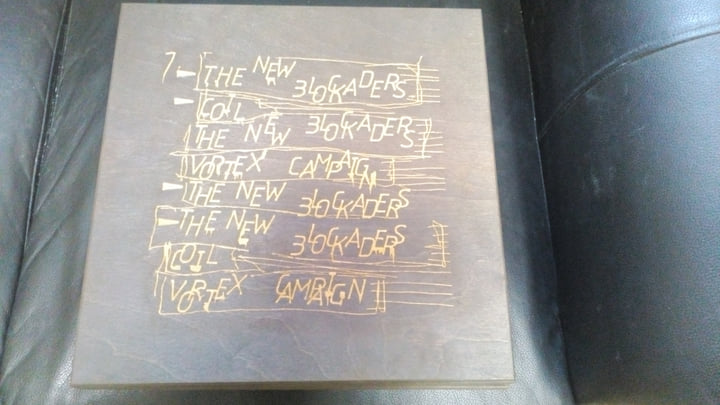 THE NEW BLOCKADERS
COIL
THE NEW BLOCKADERS
VORTEX CAMPAIGN
THE NEW BLOCKADERS
THE NEW BLOCKADERS
COIL
VORTEX CAMPAIGN